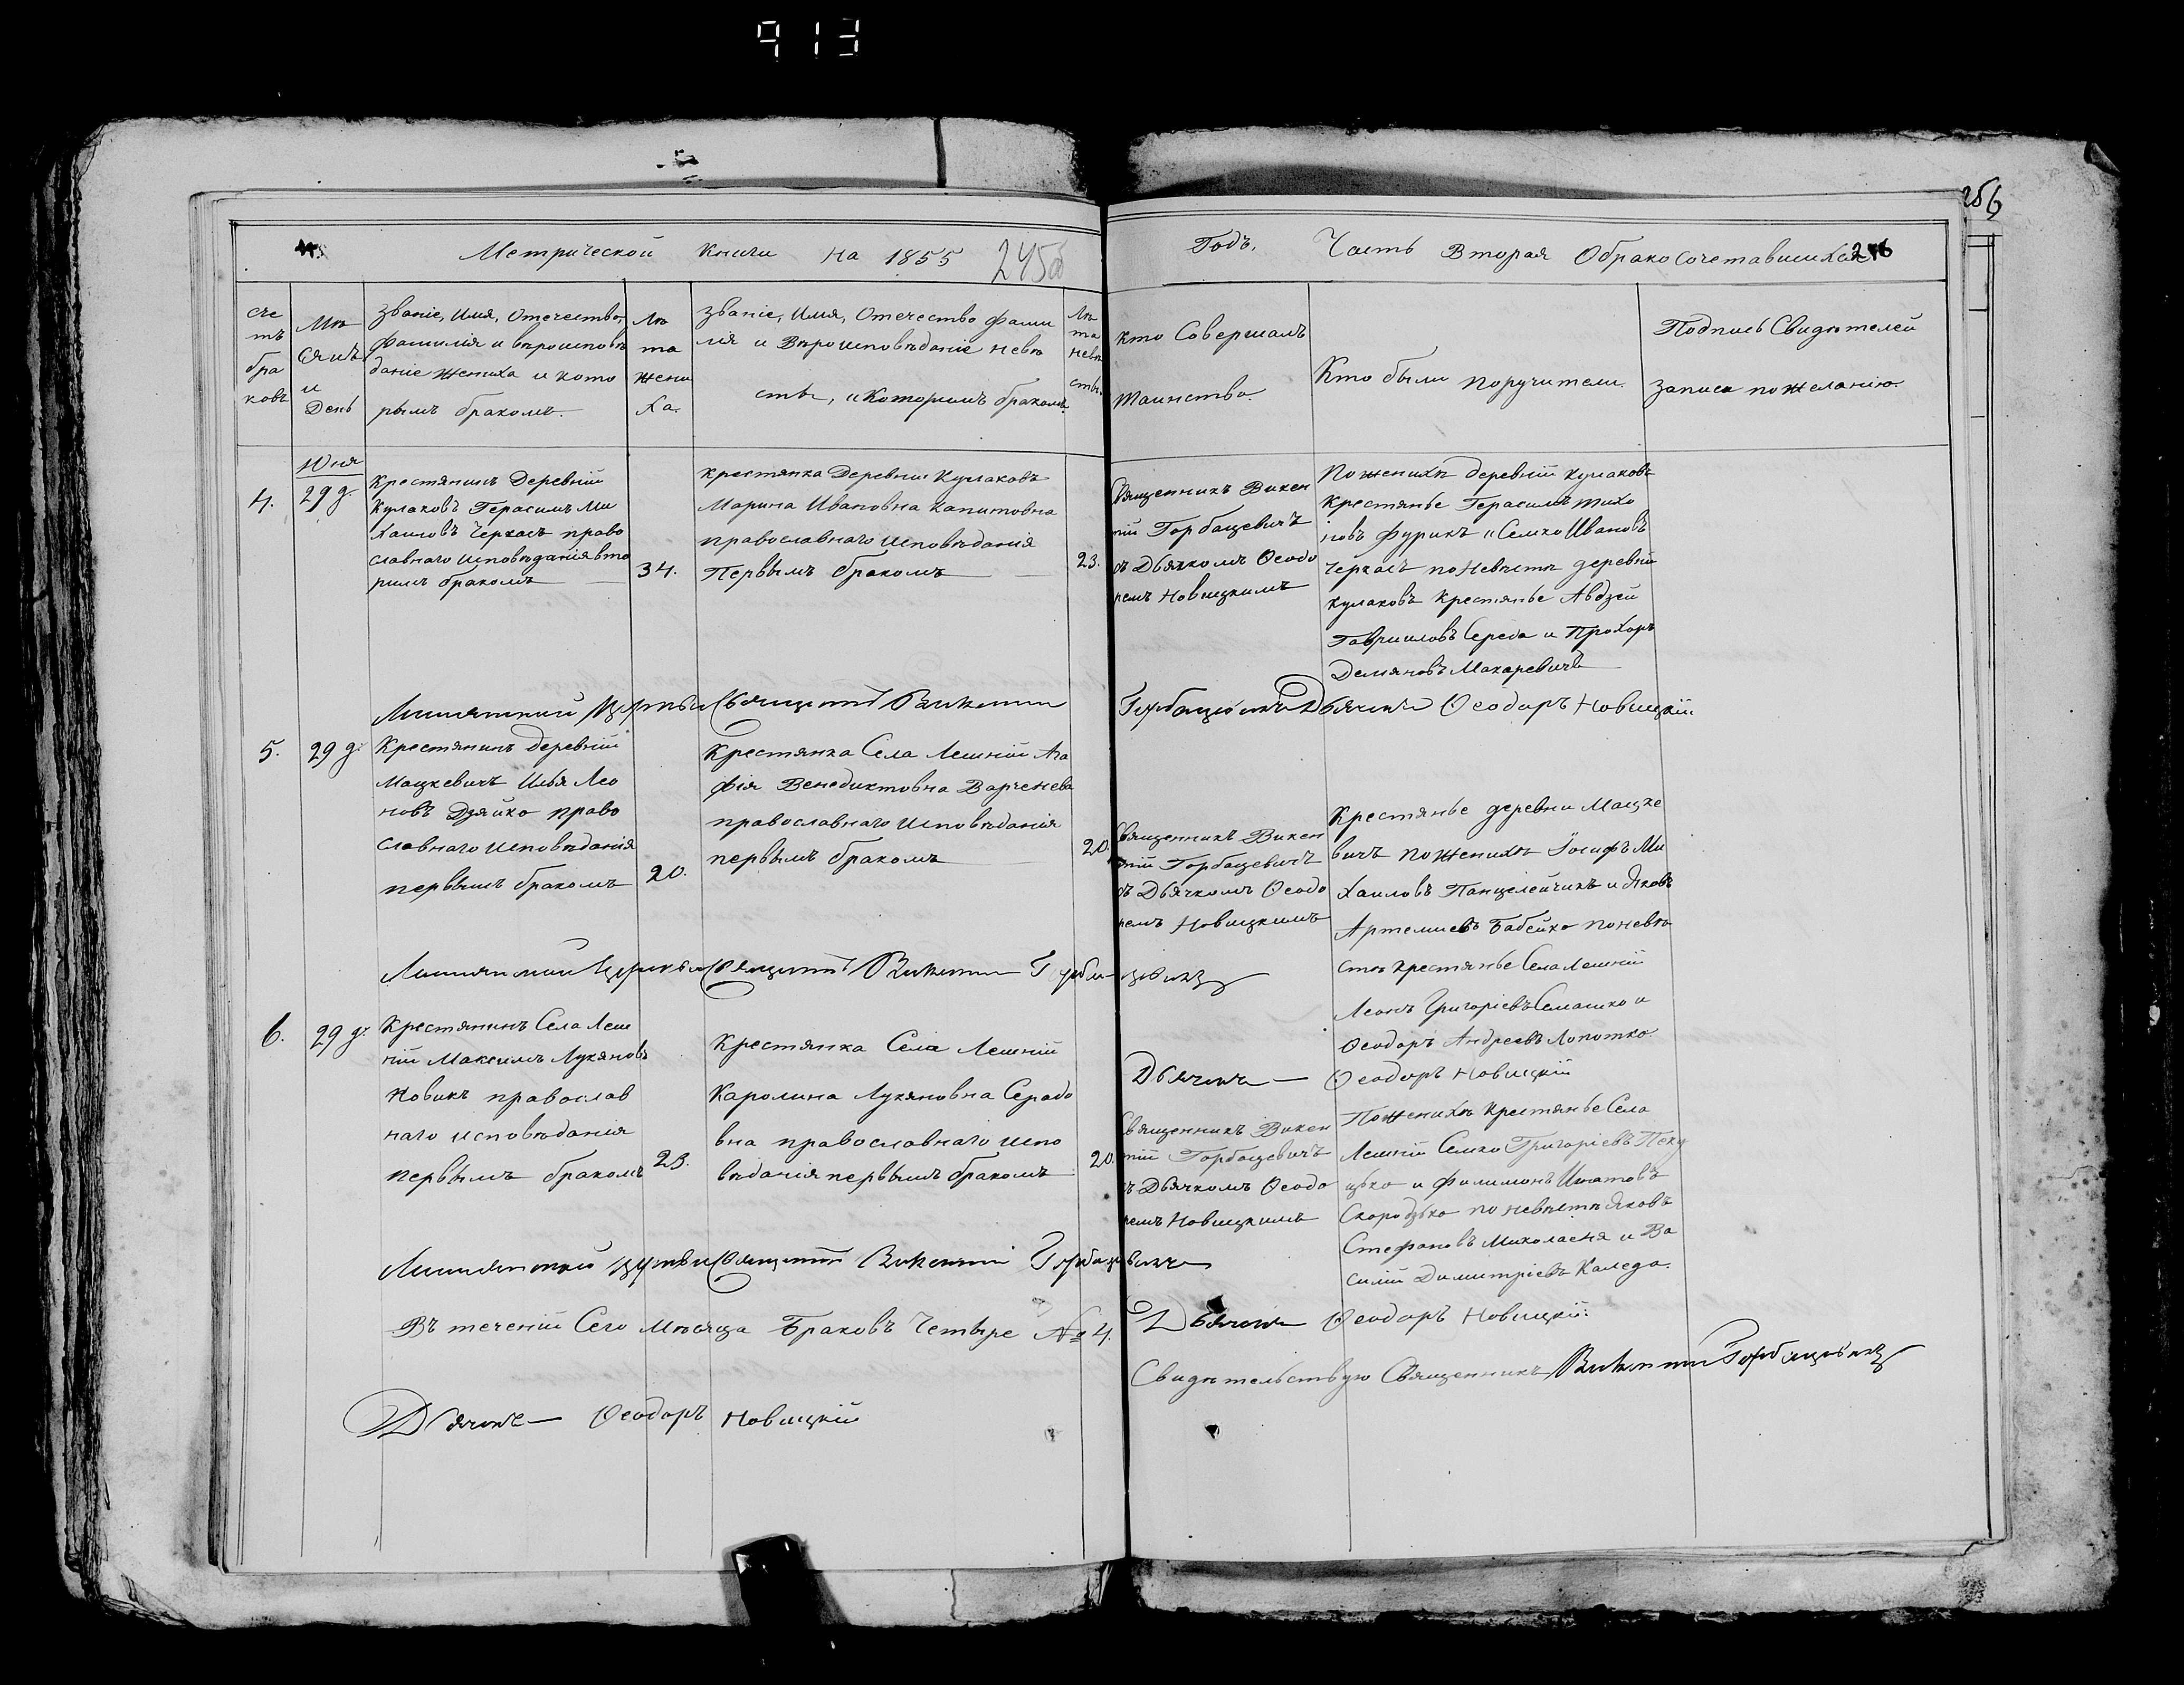 913
256
Метрической Книги на 1855
245об
Годъ, Часть Вторая О бракосочетавшихся
246
Сче
тъ
бра
ковъ
Мѣ
сяцъ
и
День
Званіе, Имя, Отечество,
Фамилія и вѣроисповѣ
даніе жениха и кото
рымъ бракомъ.
Лѣ
та
жени
ха.
Званіе, Имя, Отечество фами
лія и Вѣроисповѣданіе невѣ
сты, и Которымъ бракомъ
Лѣ
та
невѣ
сты.
Кто Совершалъ
Таинство.
Кто были поручители.
Подпись Свидѣтелей
записи по желанію.
Июня
4.
29 д.
Крестянинъ Деревній
Кулаковъ Герасимъ Ми
хаиловъ Черкасъ право
славнаго исповѣданія вто
римъ бракомъ
34.
крестянка Деревни Кулаковъ
Марина Ивановна Капитовна
православнаго исповѣданія
Первымъ бракомъ
23.
Священникъ Викен
тій Горбацевичъ
съ Дьячкомъ Ѳеодо
ремъ Новицкимъ
По женихѣ деревній кулаковъ
крестянье Герасимъ Тихо
новъ Фурикъ и Семко Ивановъ
Черкасъ по невѣстѣ деревній
кулаковъ Крестянье Авдзей
Гавриловъ Середа и Прохоръ
Демяновъ Макаревичъ
Священникъ Викентій
Горбацевичъ Дьячокъ Ѳеодоръ Новицкій
5.
29 д.
Крестянинъ деревній
Мацкевичъ Илья Лео
новъ Дзяйко право
славнаго исповѣданія
первымъ бракомъ
20.
Крестянка Села Лешній Ага
фія Венедиктовна Варченева
православнаго исповѣданія
первымъ бракомъ
20.
Священникъ Викен
тій Горбацевичъ
съ Дьячкомъ Ѳеодо
ремъ Новицкимъ
Крестянье деревни Мацке
вичъ по женихѣ Іосифъ Ми
хаиловъ Панцелейчикъ и Яковъ
Артемиевъ Бабейко по невѣ
стѣ крестянье Села Лешній
Леонъ Григоріевъ Семашко и
Ѳеодоръ Андреевъ Лопотко.
Священникъ Викентій Горбацевичъ
Дьячокъ Ѳеодоръ Новицкій
6.
29 д.
Крестянинъ Села Леш
ній Максимъ Лукяновъ
Новикъ православ
наго исповѣданія
первымъ бракомъ
23.
Крестянка Села Лешній
Каролина Лукяновна Серадо
вна православнаго испо
вѣданія первымъ бракомъ
20.
Священникъ Викен
тій Горбацевичъ
съ Дьячкомъ Ѳеодо
ремъ Новицкимъ
По женихѣ крестянье Села
Лешній Семко Григоріевъ Пеку
цько и Филимонъ Игнатовъ
Скородзько по невѣстѣ Яковъ
Стефановъ Миколаеня и Ва
силій Димитріевъ Каледа.
Священникъ Викентій Горбацевичъ
Дьячокъ Ѳеодоръ Новицкій.
Въ теченій Сего Мѣсяца Браковъ Четыре № 4.
Свидѣтельствую Священникъ Викентій Горбацевичъ
Дьячокъ Ѳеодоръ Новицкій